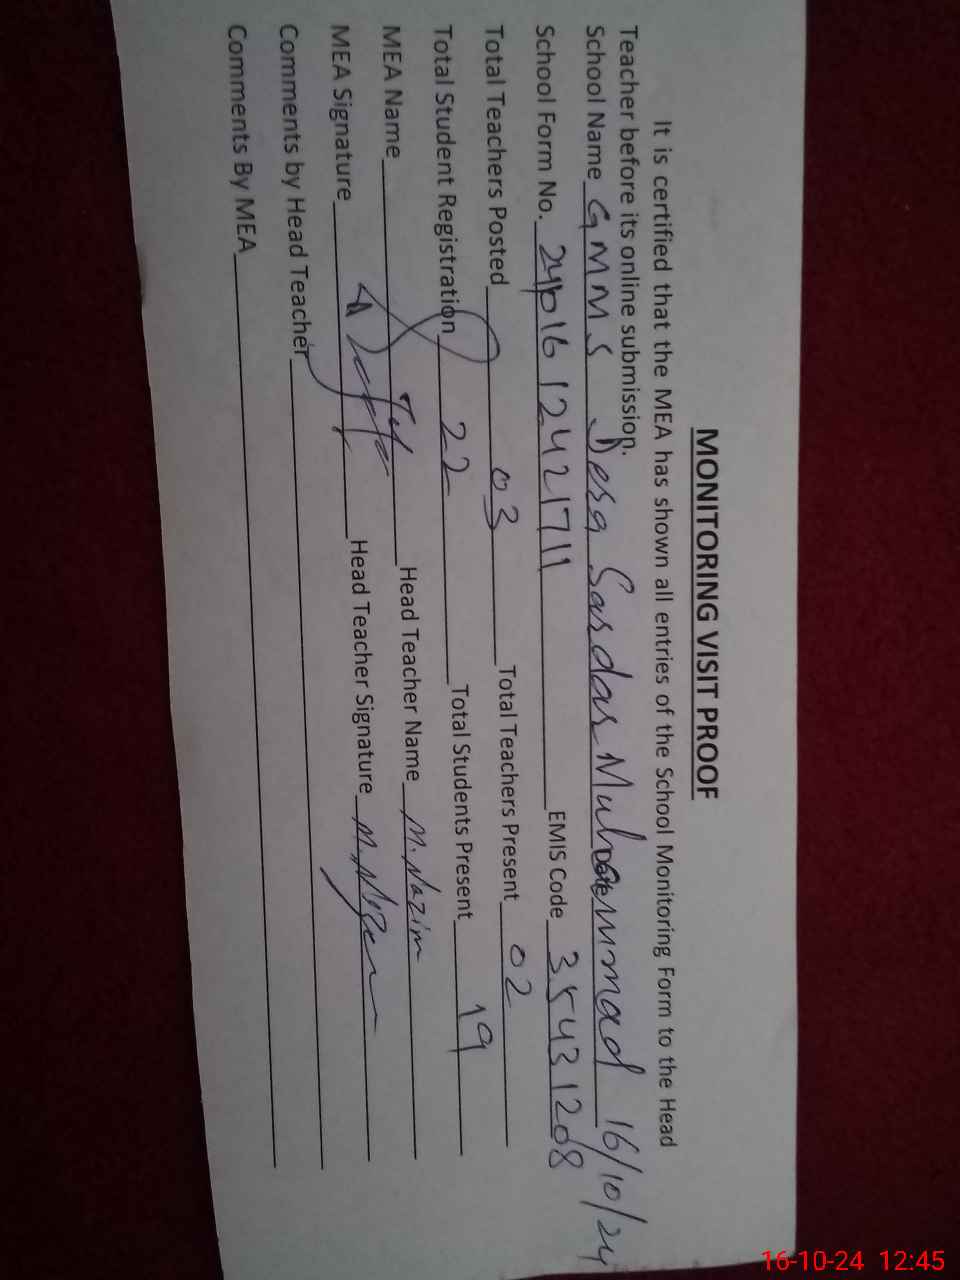 MONITORING VISIT PROOF
It is certified that the MEA has shown all entries of the School Monitoring Form to the Head
Teacher before its online submission.
School Name GMMS Dera Sardar Muhammad Date 16/10/24
School Form No. 24p1612421711 EMIS Code 35431208
Total Teachers Posted 03 Total Teachers Present 02
Total Student Registration 22 Total Students Present 19
MEA Name Head Teacher Name M. Nazim
MEA Signature Head Teacher Signature
Comments by Head Teacher
Comments By MEA
16-10-24 12:45